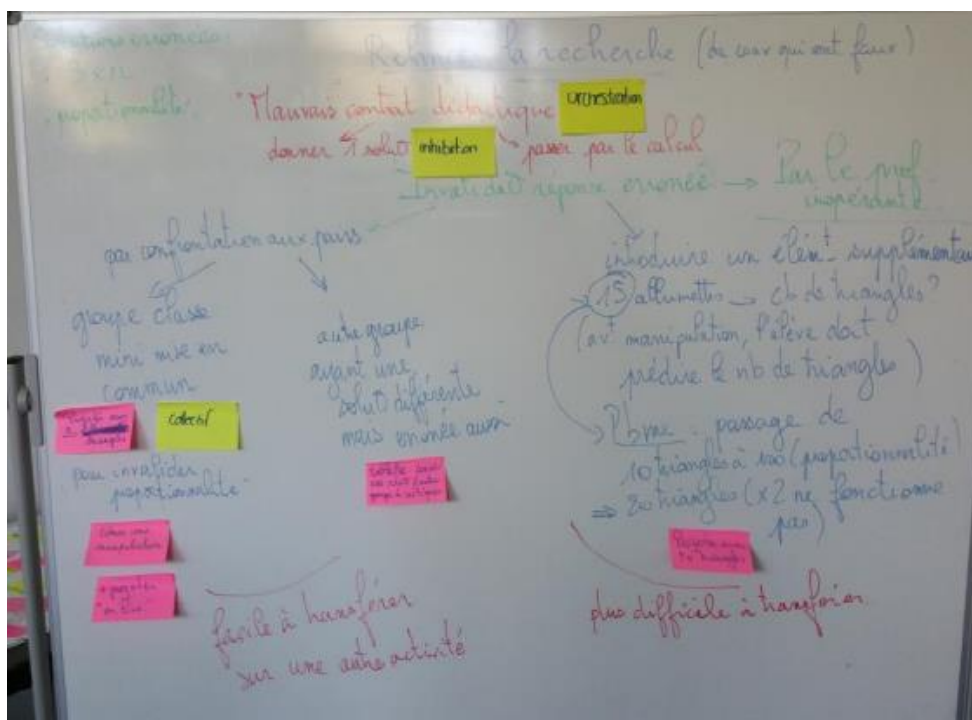 erronées
Relancer la recherche (de ceux qui ont faux)
3 x n
proportionnalité
"Mauvais contrat didactique
orchestration
donner 1 solut°
inhibition
passer par le calcul
Invalidat° réponse erronée → Par le prof
inopérante
par confrontation aux pairs
groupe classe
mini mise en
commun
collectif
pour invalider
proportionnalité
autre groupe
ayant une
solut° différente
mais erronée aussi
introduire un élémt supplémentaire
15 allumettes → cb de triangles ?
(avt manipulation, l'élève doit
prédire le nb de triangles)
Pbme : passage de
10 triangles à 100 (proportionnalité)
⇒ 20 triangles (x2 ne fonctionne
pas)
facile à transférer
sur une autre activité
plus difficile à transférer